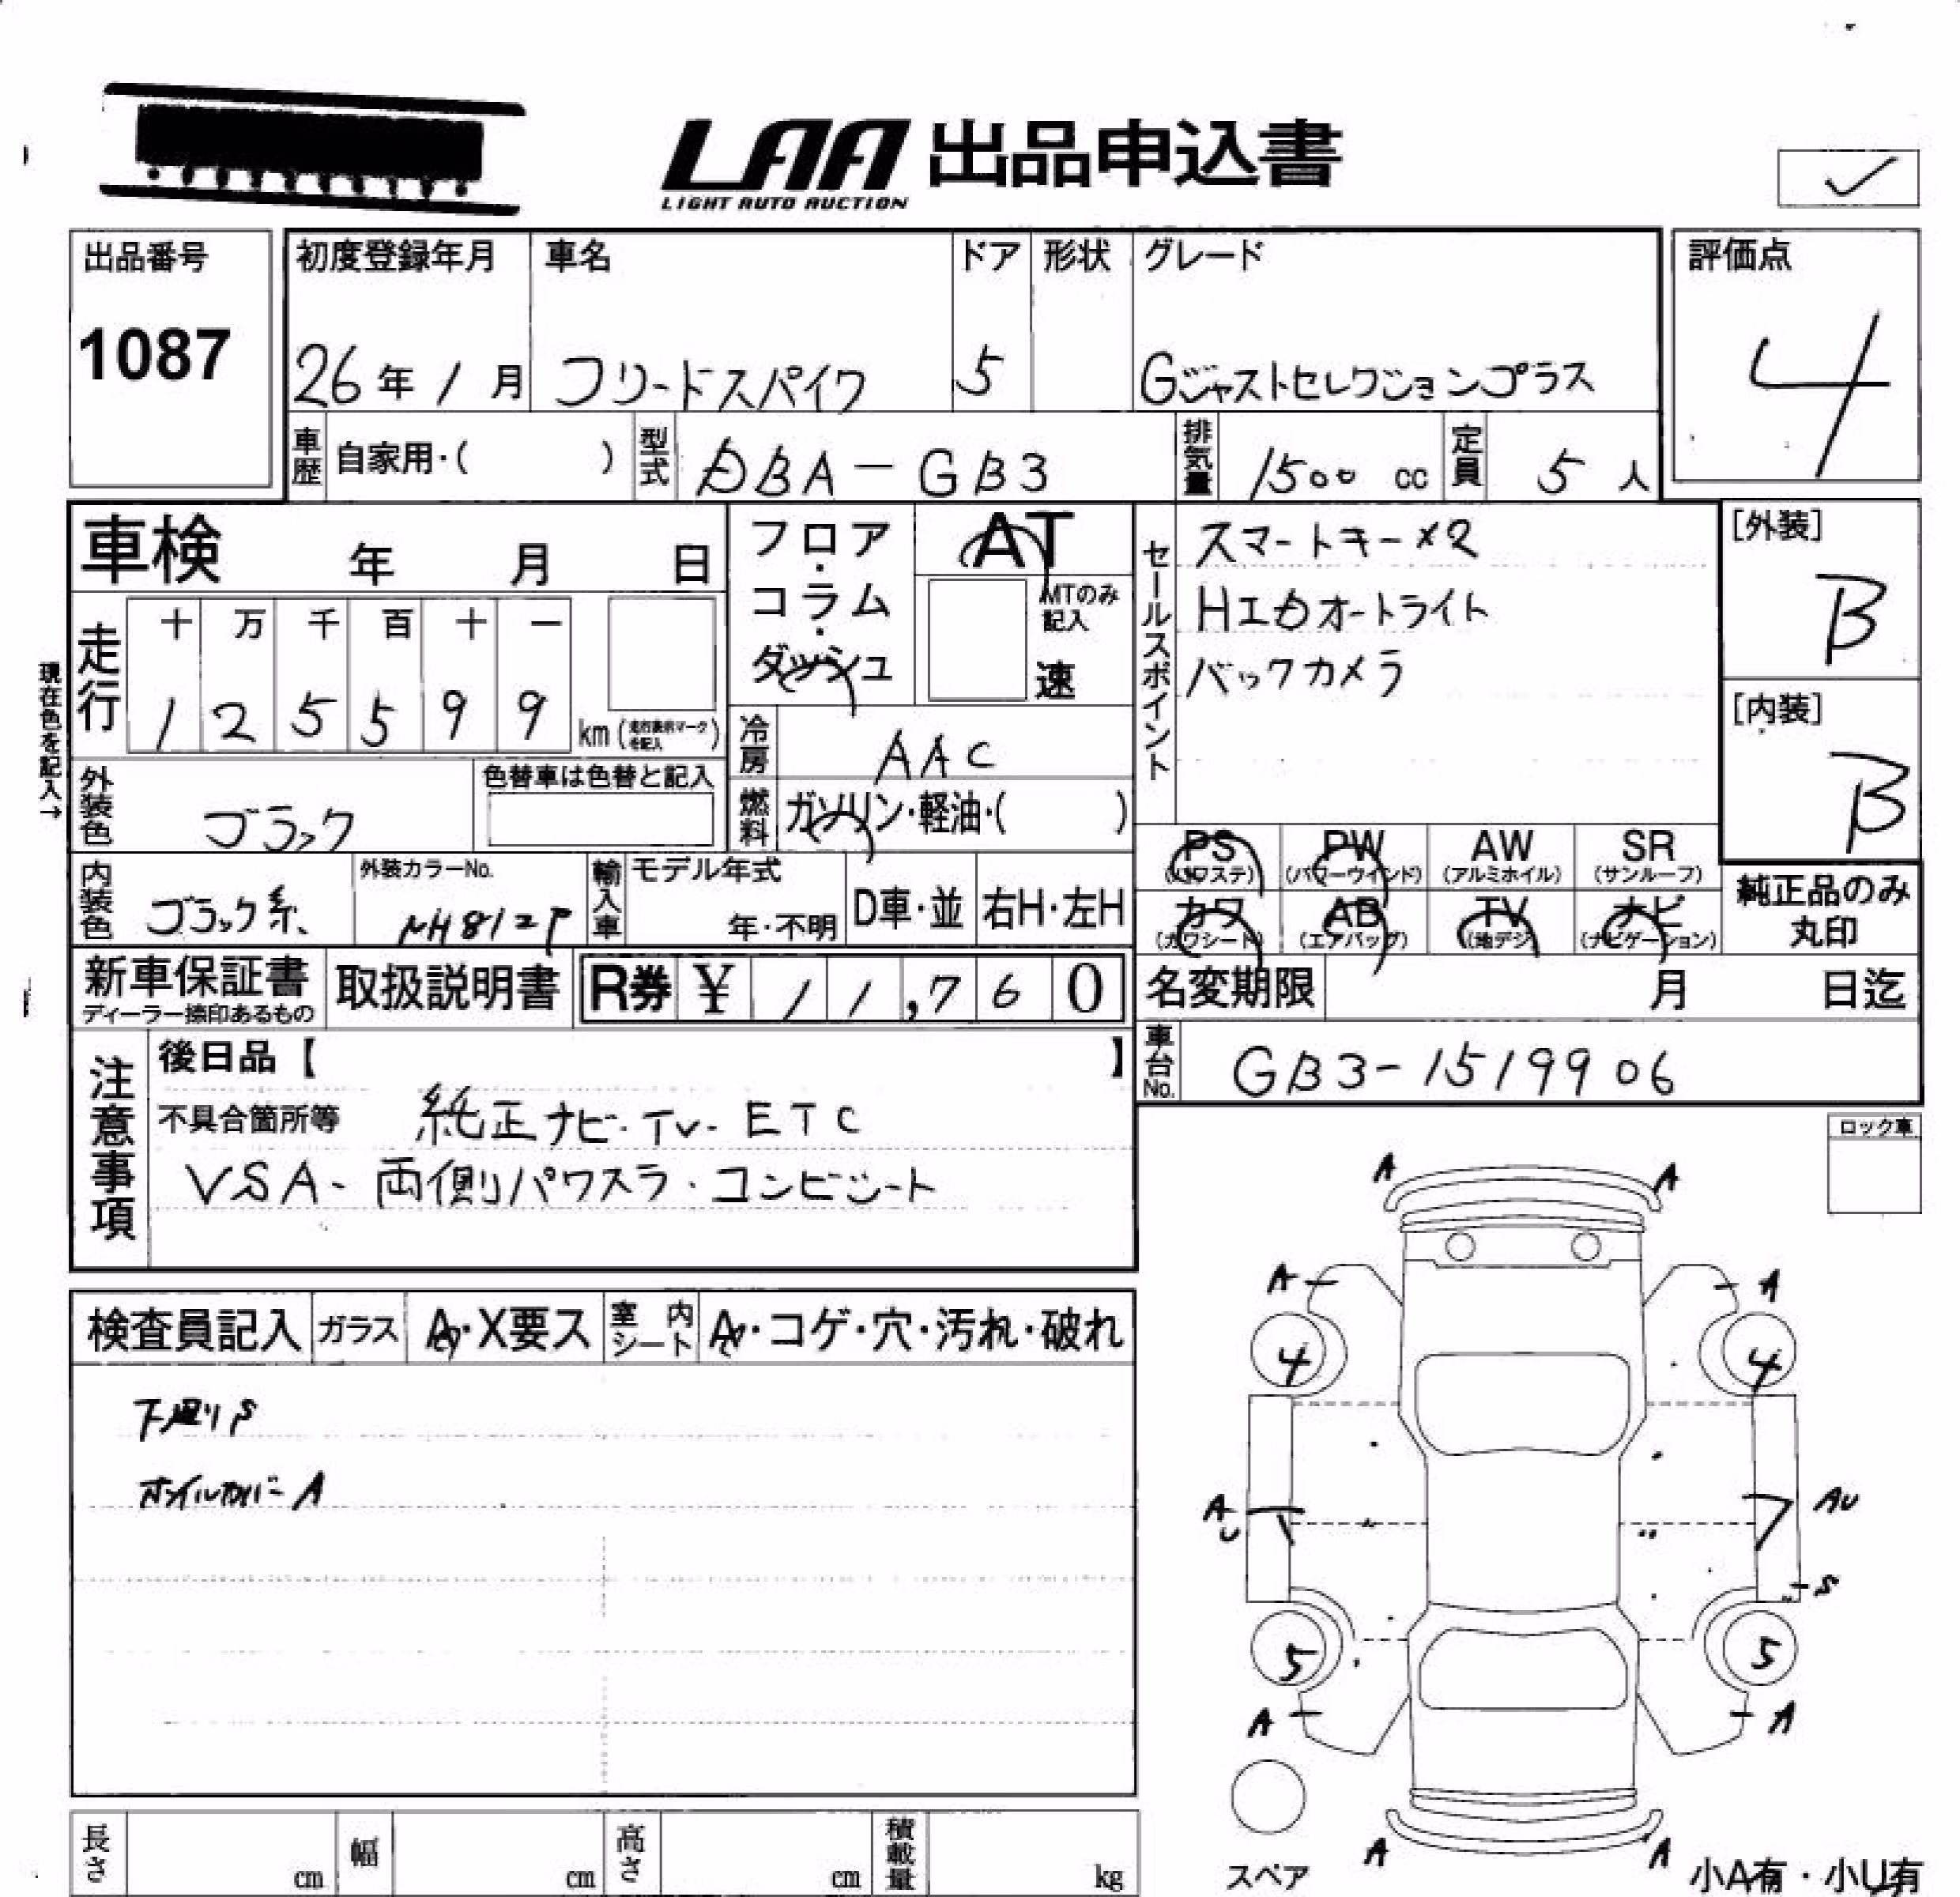 LAA 出品申込書
LIGHT AUTO AUCTION
出品番号
1087
初度登録年月 車名 ドア 形状 グレード
26年1月 フリードスパイク 5 Gジャストセレクションプラス
評価点
4
車歴 自家用・( ) 型式 DBA-GB3 排気量 1500 cc 定員 5 人
車検 年 月 日
フロア・コラム・ダッシュ
AT
MTのみ記入
速
セールスポイント
スマートキー×2
HIDオートライト
バックカメラ
[外装]
B
[内装]
B
現在色を記入→
走行 十 万 千 百 十 一
1 2 5 5 9 9 km
冷房 AAC
外装色 ブラック
色替車は色替と記入
燃料 ガソリン・軽油・( )
PS (パワステ) PW (パワーウインド) AW (アルミホイル) SR (サンルーフ)
カワ (カワシート) AB (エアバッグ) TV (地デジ) ナビ (ナビゲーション)
純正品のみ丸印
内装色 ブラック系 外装カラーNo. NH812P 輸入車 モデル年式 年・不明 D車・並 右H・左H
新車保証書 ディーラー捺印あるもの 取扱説明書 R券 ¥ 11,760
名変期限 月 日迄
車台No. GB3-1519906
注意事項
後日品【 】
不具合箇所等 純正ナビ・TV・ETC
VSA・両側パワスラ・コンビシート
ロック車
検査員記入 ガラス A・X要ス 室内シート A・コゲ・穴・汚れ・破れ
下廻りS
ホイルカバーA
A A
A A
4 4
AU AU
S
5 5
A A
スペア
A A
小A有・小U有
長さ cm 幅 cm 高さ cm 積載量 kg